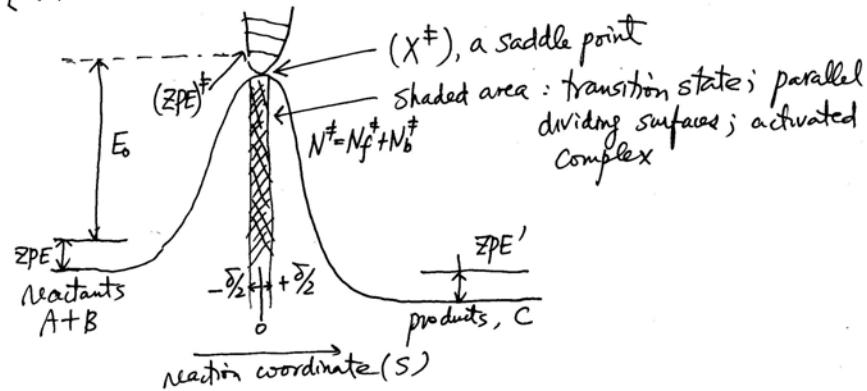 (X‡), a saddle point
(ZPE)‡
shaded area : transition state; parallel
dividing surfaces; activated
complex
N‡=N‡f+N‡b
E₀
ZPE
ZPE'
reactants
A+B
-δ/2
+δ/2
0
products, C
reaction coordinate (S)